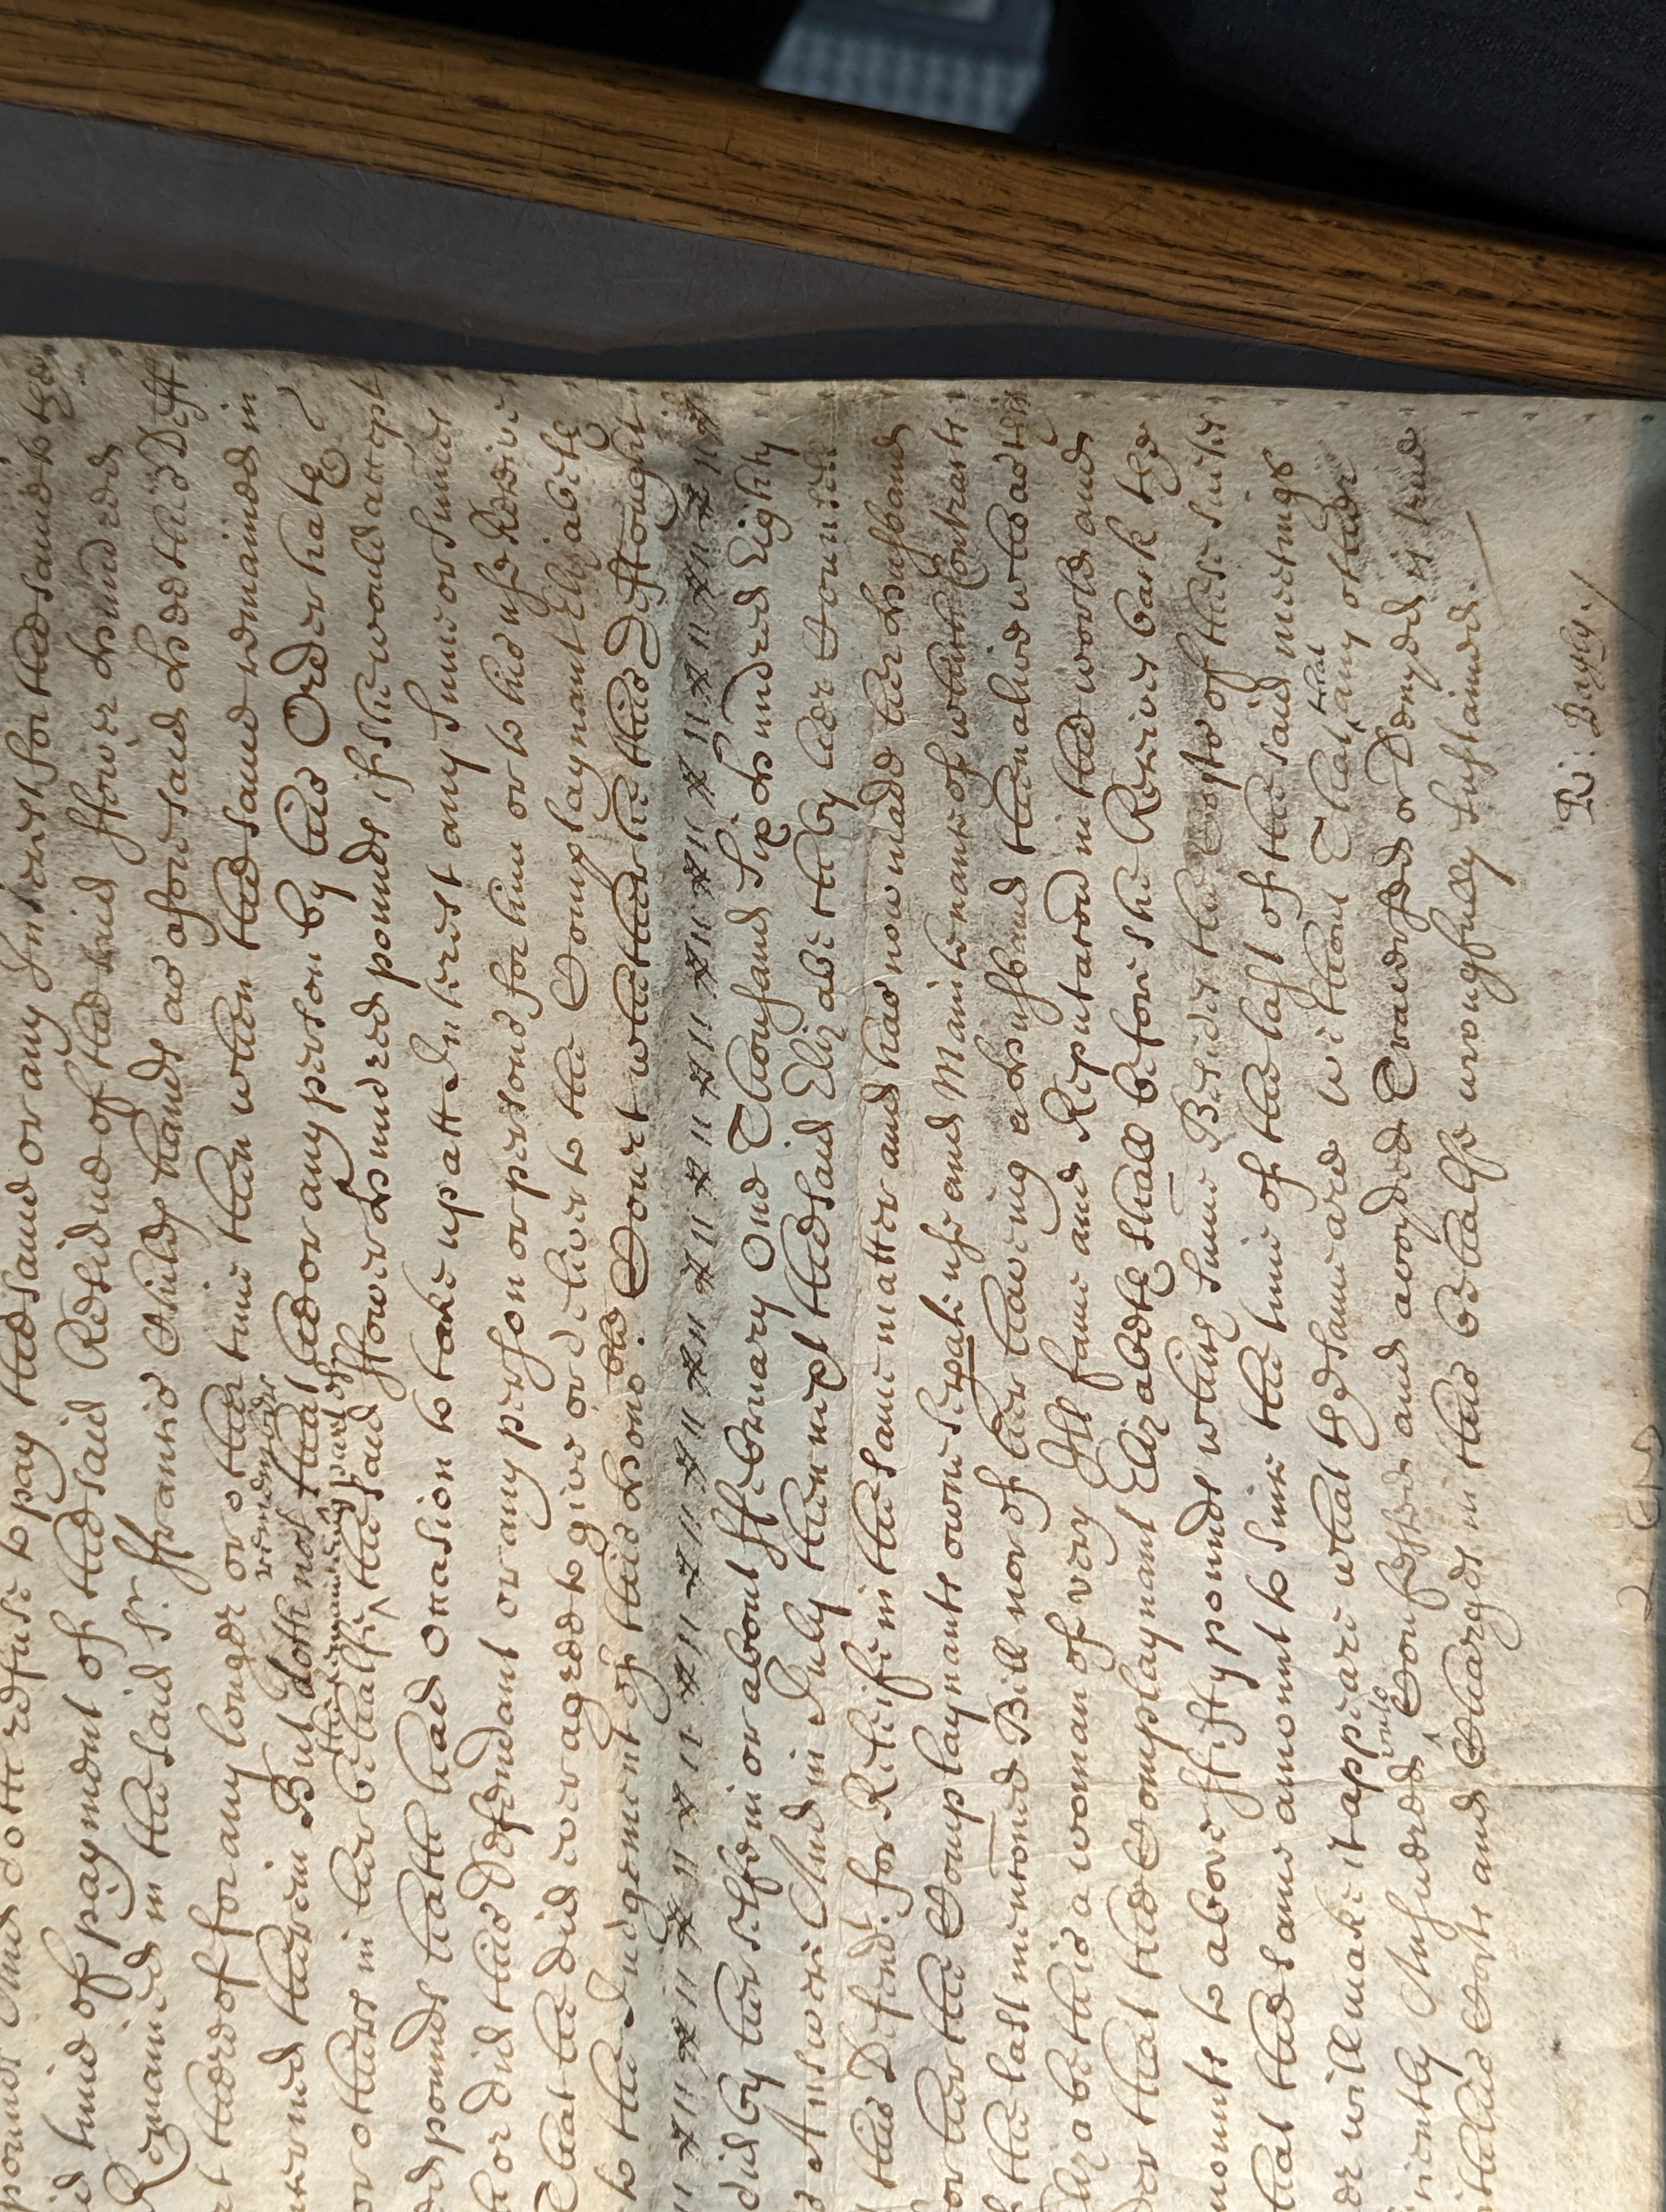 pounds And doth refuse to pay the same or any Interest for the same to the
id time of payment of the said Residue of the said ffower hundred
Remained in the said Sr. ffrancis Childs hands as aforesaid hee this Deft
rt thereof for any longer or other time then when the same remained in
erned therein But doth not remember that hee or any person by his Order hath
or others in her behalfe the remaining part of the said ffower hundred pounds if shee would accept
ed pounds hath had occasion to take up att Interest any Summe or Summes
hor did this Defendant or any person or persons for him or to his use Receive
That hee did ever agree to give or deliver to the Complaynant Elizabeth
to the Judgement of this Hono:ble Court whether hee this Deft ought
did by her selfe in or about ffebruary One Thousand Six hundred Eighty
s Answere And in July then next the said Elizabeth by her Councell
this Defend:t for Reliefe in the same matter and has now made her husband
or her the Complaynants owne Seperate use and Maintenance of which Contracts
f the last mentioned Bill nor of her haveing a husband then alive who as this
Elizabeth is a woman of very Ill fame and Reputation in the world and
er that the Complaynant Elizabeth shall before she Receives back the
mounts to above ffifty pounds which summe Besides the Costs of these Suites
that the same amount to Since the time of the last of the said meetings
er will make it appeare what the same are Without That that any other
iently Answered unto Confessed and avoyded Traversed or Denyed is true
is his Costs and Charges in this behalfe wrongfully sustained.
Ri: Bagly./